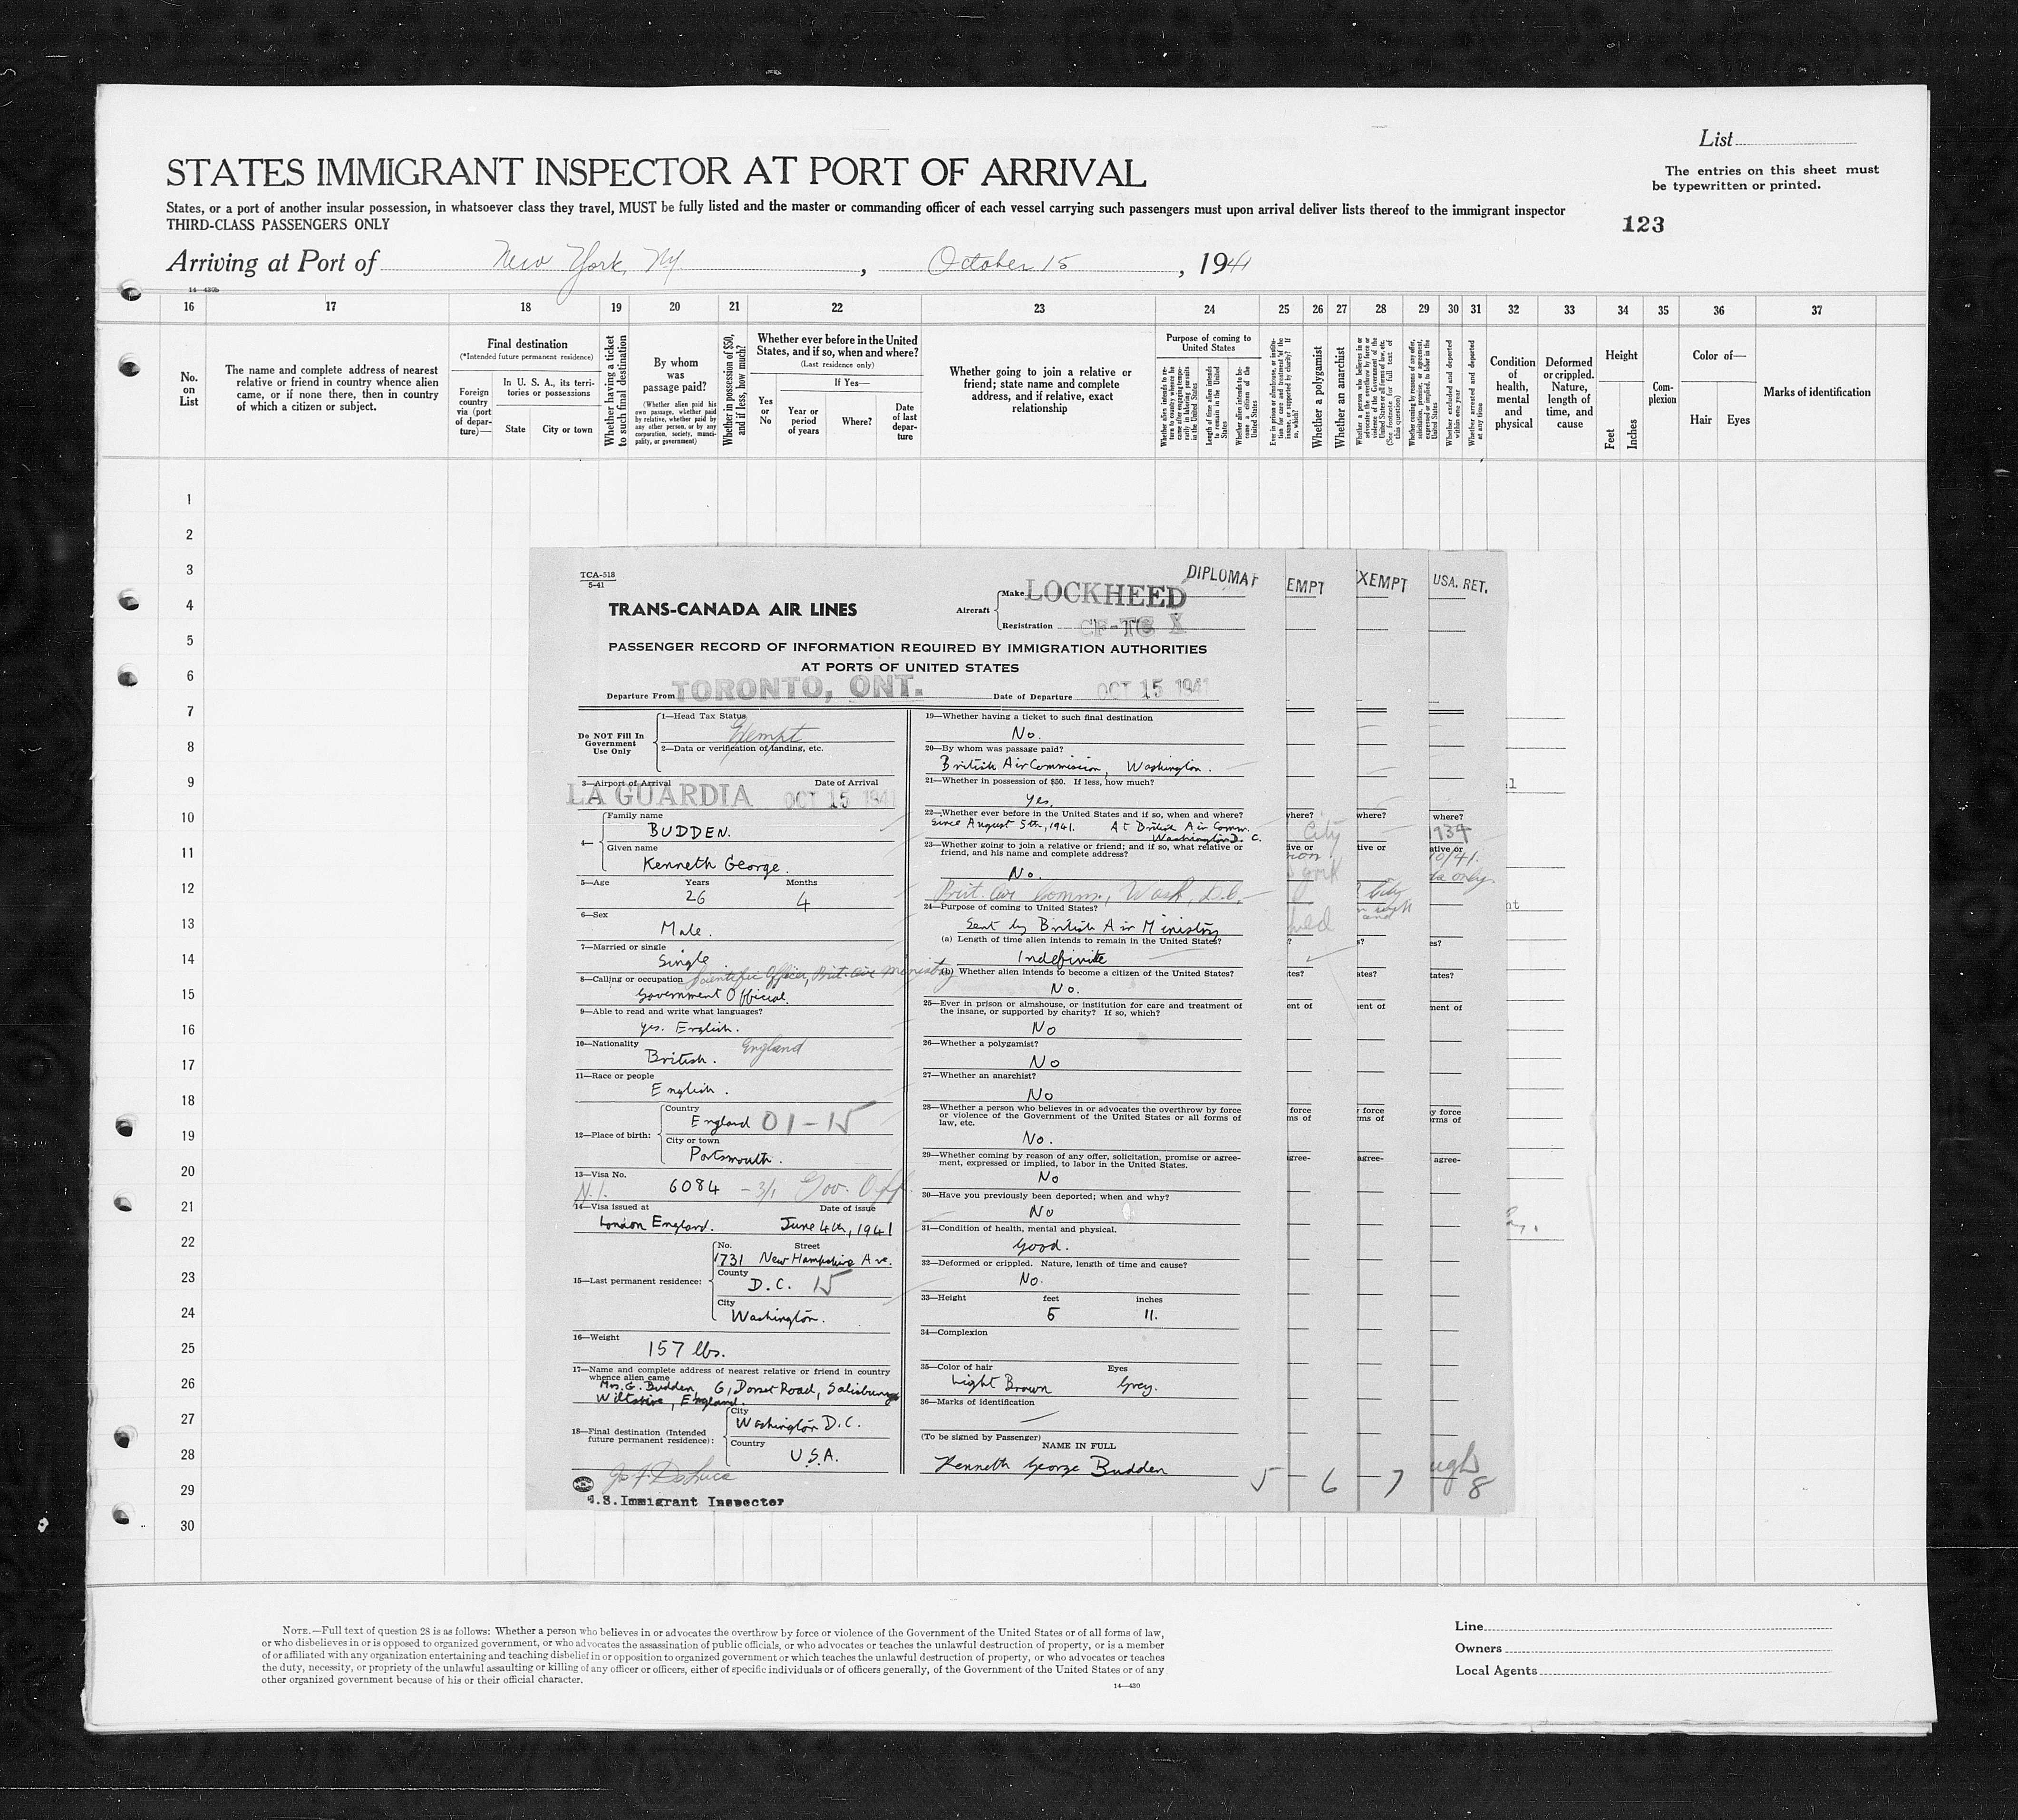 List
The entries on this sheet must
be typewritten or printed.
STATES IMMIGRANT INSPECTOR AT PORT OF ARRIVAL
States, or a port of another insular possession, in whatsoever class they travel, MUST be fully listed and the master or commanding officer of each vessel carrying such passengers must upon arrival deliver lists thereof to the immigrant inspector
THIRD-CLASS PASSENGERS ONLY
123
Arriving at Port of New York, NY, October 15, 1941
14-430b
16 17 18 19 20 21 22 23 24 25 26 27 28 29 30 31 32 33 34 35 36 37
No. on List
The name and complete address of nearest
relative or friend in country whence alien
came, or if none there, then in country
of which a citizen or subject.
Final destination
(*Intended future permanent residence)
Foreign country via (port of departure)—
In U. S. A., its territories or possessions
State
City or town
Whether having a ticket to such final destination
By whom was passage paid?
(Whether alien paid his own passage, whether paid by relative, whether paid by any other person, or by any corporation, society, municipality, or government)
Whether in possession of $50, and if less, how much?
Whether ever before in the United
States, and if so, when and where?
(Last residence only)
Yes or No
If Yes—
Year or period of years
Where?
Date of last departure
Whether going to join a relative or
friend; state name and complete
address, and if relative, exact
relationship
Purpose of coming to United States
Length of time alien intends to remain in the United States
Whether alien intends to become a citizen of the United States
Whether a polygamist
Whether an anarchist
Whether excluded and deported within one year
Whether arrested and deported at any time
Condition of health, mental and physical
Deformed or crippled. Nature, length of time, and cause
Height
Feet
Inches
Complexion
Color of—
Hair
Eyes
Marks of identification
1
2
3
4
5
6
7
8
9
10
11
12
13
14
15
16
17
18
19
20
21
22
23
24
25
26
27
28
29
30
TCA-518
5-41
TRANS-CANADA AIR LINES
Aircraft
Make LOCKHEED
Registration CF-TC X
DIPLOMAT
EMPT
XEMPT
USA. RET.
PASSENGER RECORD OF INFORMATION REQUIRED BY IMMIGRATION AUTHORITIES
AT PORTS OF UNITED STATES
Departure From TORONTO, ONT.
Date of Departure OCT 15 1941
Do NOT Fill In
Government
Use Only
1—Head Tax Status
Exempt
2—Data or verification of landing, etc.
3—Airport of Arrival
Date of Arrival
LA GUARDIA OCT 15 1941
4—
Family name
BUDDEN.
Given name
Kenneth George.
5—Age Years Months
26 4
6—Sex
Male.
7—Married or single
Single
8—Calling or occupation Scientific Officer, Brit. Air Ministry
Government Official.
9—Able to read and write what languages?
yes. English.
10—Nationality
British. England
11—Race or people
English.
12—Place of birth:
Country
England 01-15
City or town
Portsmouth.
13—Visa No.
6084 -3/1 Gov. Off.
14—Visa issued at Date of issue
London England. June 4th, 1941
15—Last permanent residence:
No. Street
1731 New Hampshire Ave.
County
D.C. 15
City
Washington.
16—Weight
157 lbs.
17—Name and complete address of nearest relative or friend in country
whence alien came
Mrs. G. Budden, 6, Dorset Road, Salisbury
Wiltshire, England.
18—Final destination (Intended
future permanent residence):
City
Washington D.C.
Country
U.S.A.
U.S. Immigrant Inspector
19—Whether having a ticket to such final destination
No.
20—By whom was passage paid?
British Air Commission, Washington.
21—Whether in possession of $50. If less, how much?
Yes.
22—Whether ever before in the United States and if so, when and where?
Since August 5th, 1941. At British Air Comm.
Washington D. C.
23—Whether going to join a relative or friend; and if so, what relative or
friend, and his name and complete address?
No.
Brit. Air Comm., Wash, D.C.
24—Purpose of coming to United States?
Sent by British Air Ministry
(a) Length of time alien intends to remain in the United States?
Indefinite
(b) Whether alien intends to become a citizen of the United States?
No.
25—Ever in prison or almshouse, or institution for care and treatment of
the insane, or supported by charity? If so, which?
No
26—Whether a polygamist?
No
27—Whether an anarchist?
No
28—Whether a person who believes in or advocates the overthrow by force
or violence of the Government of the United States or all forms of
law, etc.
No.
29—Whether coming by reason of any offer, solicitation, promise or agree-
ment, expressed or implied, to labor in the United States.
No
30—Have you previously been deported; when and why?
No
31—Condition of health, mental and physical.
Good.
32—Deformed or crippled. Nature, length of time and cause?
No.
33—Height feet inches
5 11.
34—Complexion
35—Color of hair Eyes
Light Brown Grey.
36—Marks of identification
(To be signed by Passenger)
NAME IN FULL
Kenneth George Budden
5 6 7 8
NOTE.—Full text of question 28 is as follows: Whether a person who believes in or advocates the overthrow by force or violence of the Government of the United States or of all forms of law,
or who disbelieves in or is opposed to organized government, or who advocates the assassination of public officials, or who advocates or teaches the unlawful destruction of property, or is a member
of or affiliated with any organization entertaining and teaching disbelief in or opposition to organized government or which teaches the unlawful destruction of property, or who advocates or teaches
the duty, necessity, or propriety of the unlawful assaulting or killing of any officer or officers, either of specific individuals or of officers generally, of the Government of the United States or of any
other organized government because of his or their official character.
14—430
Line
Owners
Local Agents